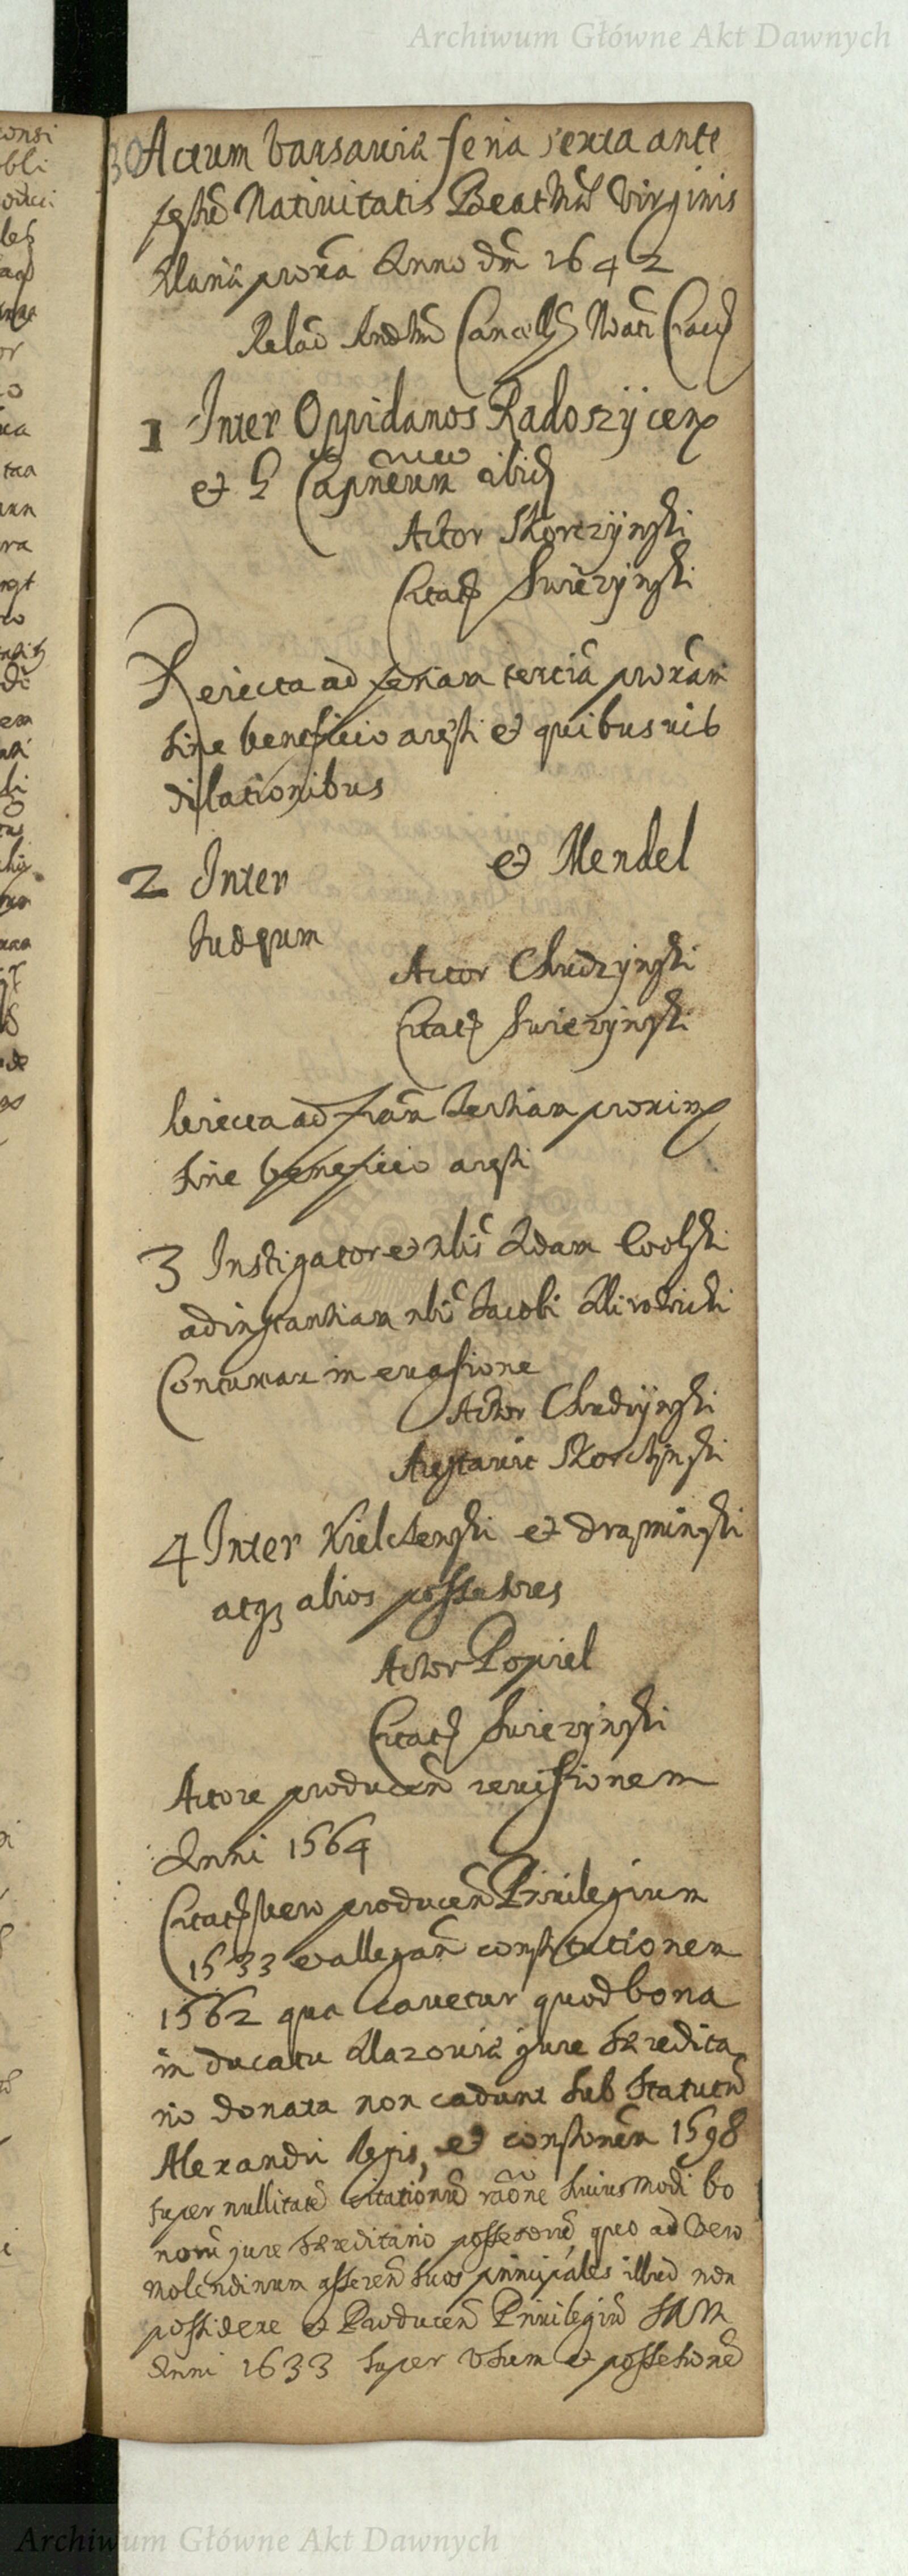 Archiwum Główne Akt Dawnych
30
Actum Varsaviæ feria sexta ante
festū Nativitatis Beatiss Virginis
Mariæ proxa Anno Dni 1642
Inter Oppidanos Radoszycen
et G Capneum ibid
Actor Skorczynski
Citat Swierzynski
Reiecta ad feriam terciā proxam
sine beneficio aresti et quibusuis
dilationibus
2 Inter et Mendel
Judæum
Actor Chudzynski
Citat Swierzynski
Reiecta ad frām tertiam proxim
sine beneficio aresti
3 Instigatore et nblis Adam
ad instantiam nblis Jacobi
Contumax in euasione
Actor Chudzynski
Arestavit Skorczynski
4 Inter Kielczenski et Draminski
atq3 alios possessores
Actor Popiel
Citat Swierzynski
Actore producen reuisionem
Anni 1564
Citat vero producen Priuilegium
1533 et allegan constitutionem
1562 qua cauetur quod bona
in ducatu Mazoviæ jure hæredita
rio donata non cadunt sub Statutū
Alexandri Regis, et constonem 1598
super nullitatē citationū raone huiusmodi bo
norū jure hæreditario possessorū, quo ad vero
molendinum asseren suos principales illud non
possidere et Producen Priuilegiū SRM
Anni 1633 super Vsum et possessionē
Archiwum Główne Akt Dawnych